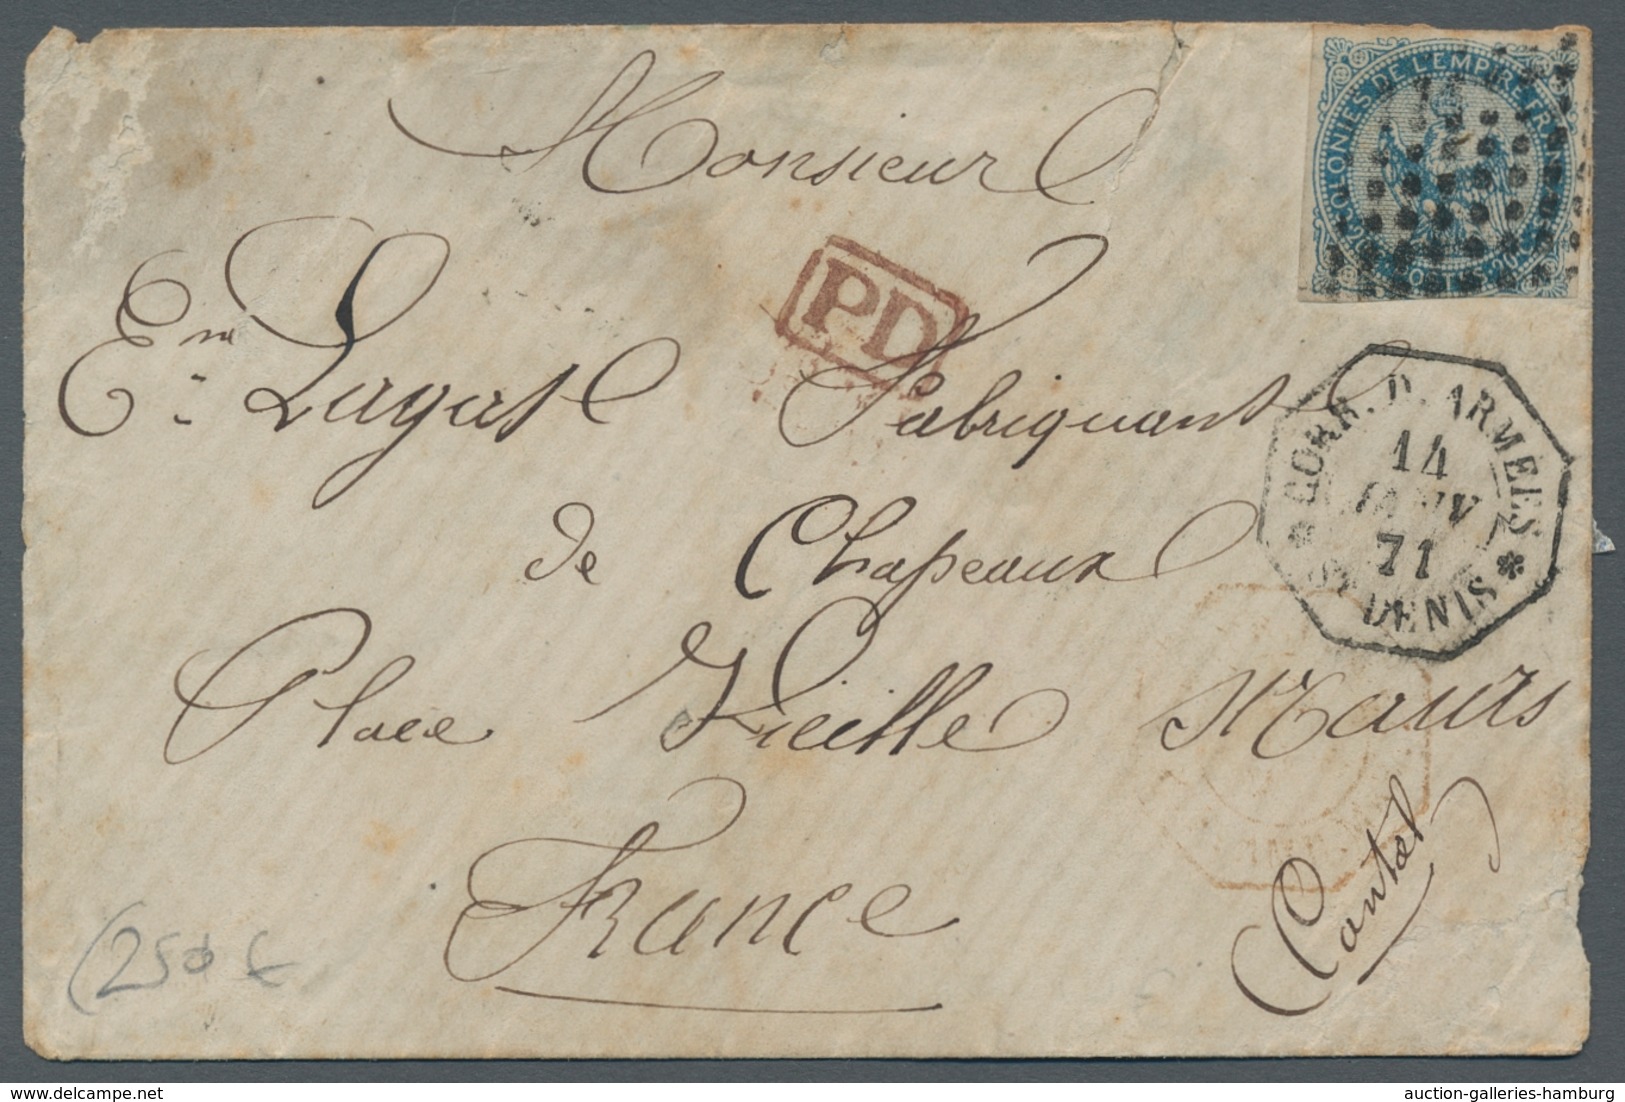 COLONIES DE L'EMPIRE FRAN
Monsieur
PD
Fabriquant
de Chapeaux
CORR. D. ARMÉES
14
JANV
71
ST DENIS
Place Vieille Maurs
Cantal
France
auction-galleries-hamburg